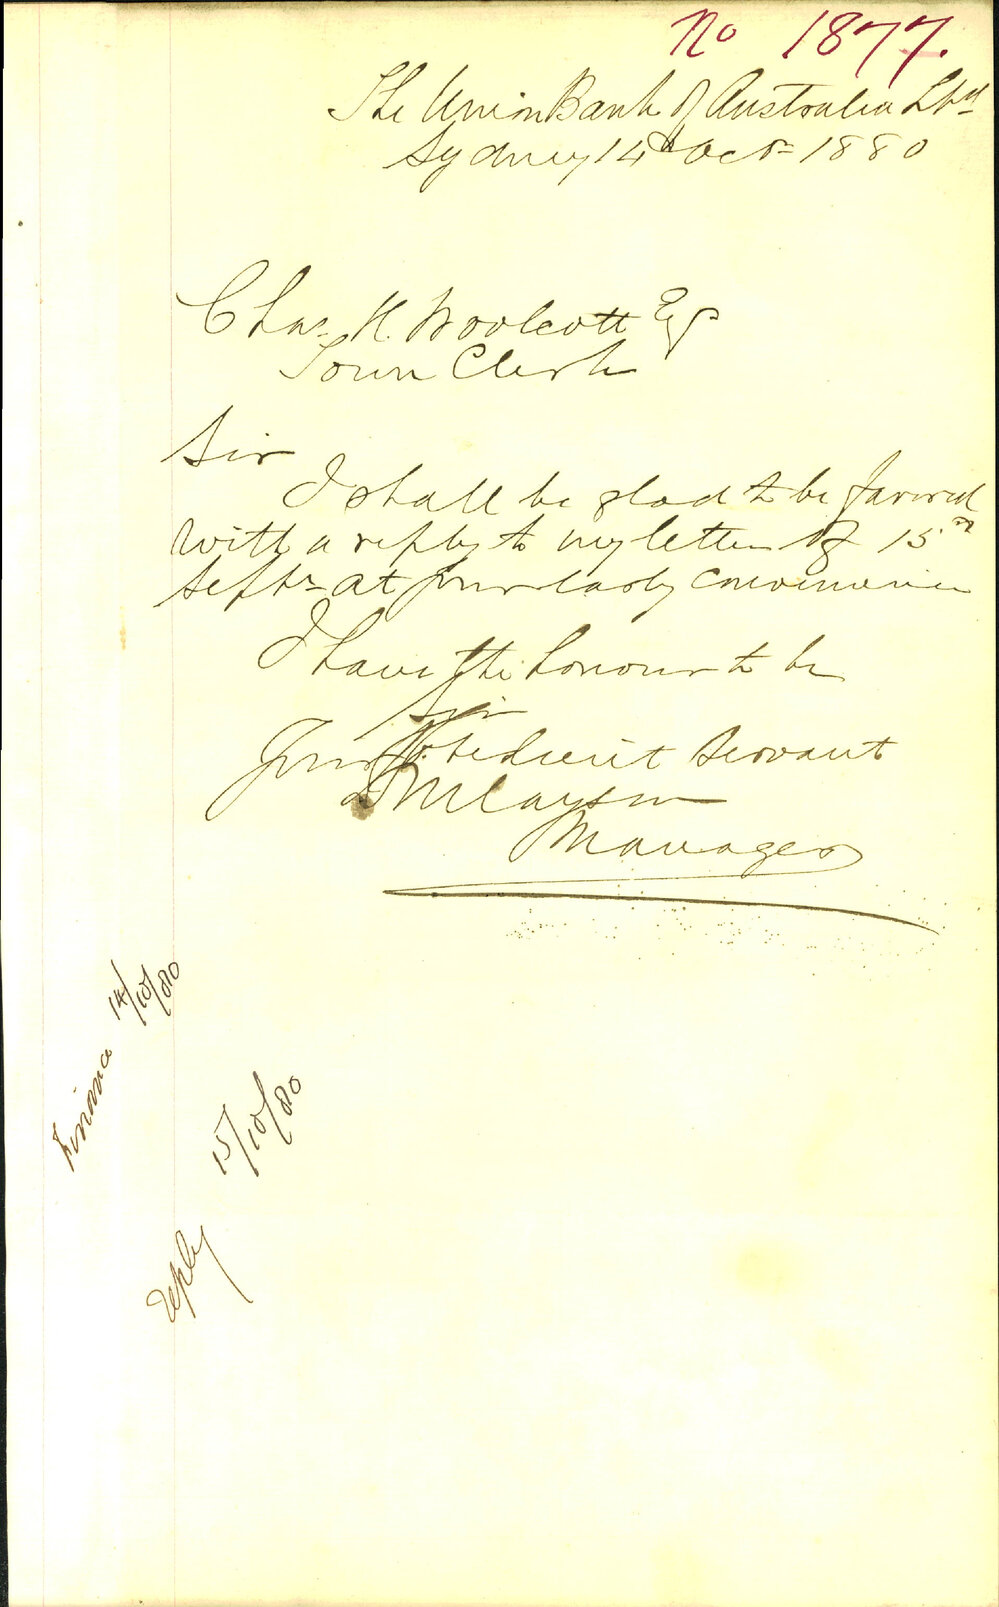 No 1877.
The Union Bank of Australia Ltd
Sydney 14th Octr 1880
Chas. H. Woolcott Esq
Town Clerk
Sir
I shall be glad to be favored
with a reply to my letter of 15th
Septr at your early convenience
I have the honour to be
Sir
Your Obedient Servant
Manager
Finance 14/10/80
reply 15/10/80